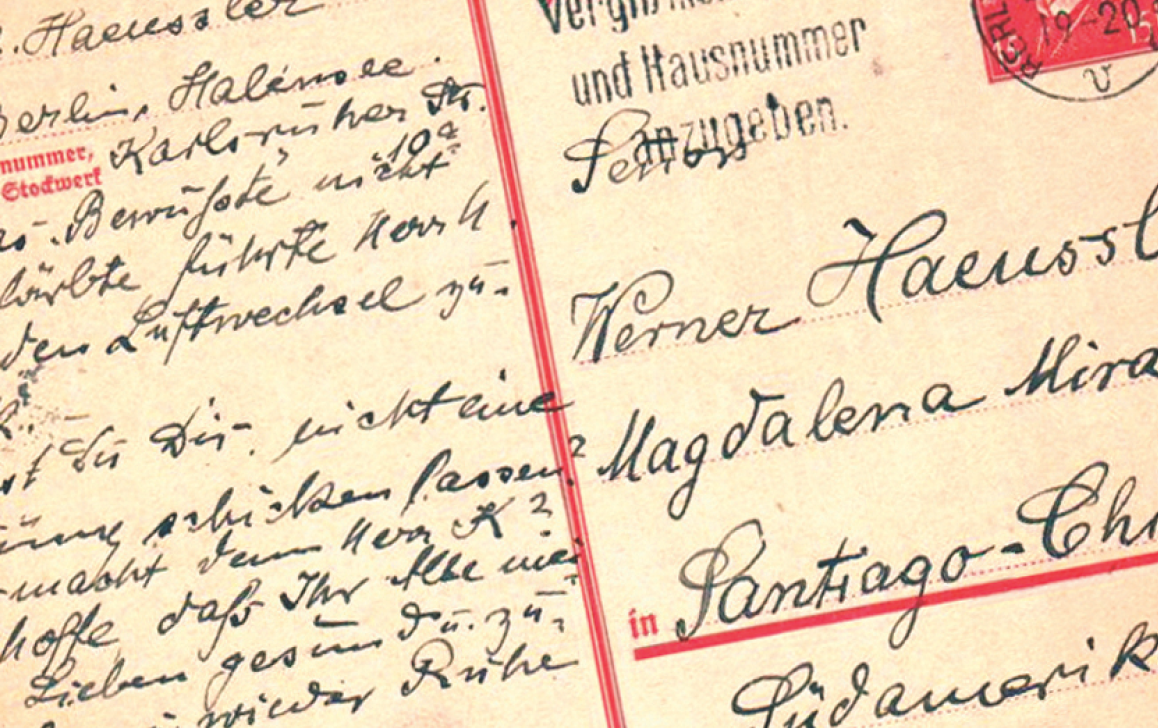 Haeussler
Berlin, Halensee.
nummer, Karlsruher Str.
Stockwerk 10a
Bewußte nicht
färbte führte Herr H.
den Luftwechsel zu-
Du Dir nicht eine
schicken lassen?
macht denn Herr K?
hoffe, daß Ihr Alle mei
Lieben gesund u. zu-
wieder Ruhe
und Hausnummer
anzugeben.
Señor
Werner Haeussl
Magdalena Mira
in Santiago-Chi
Südamerik